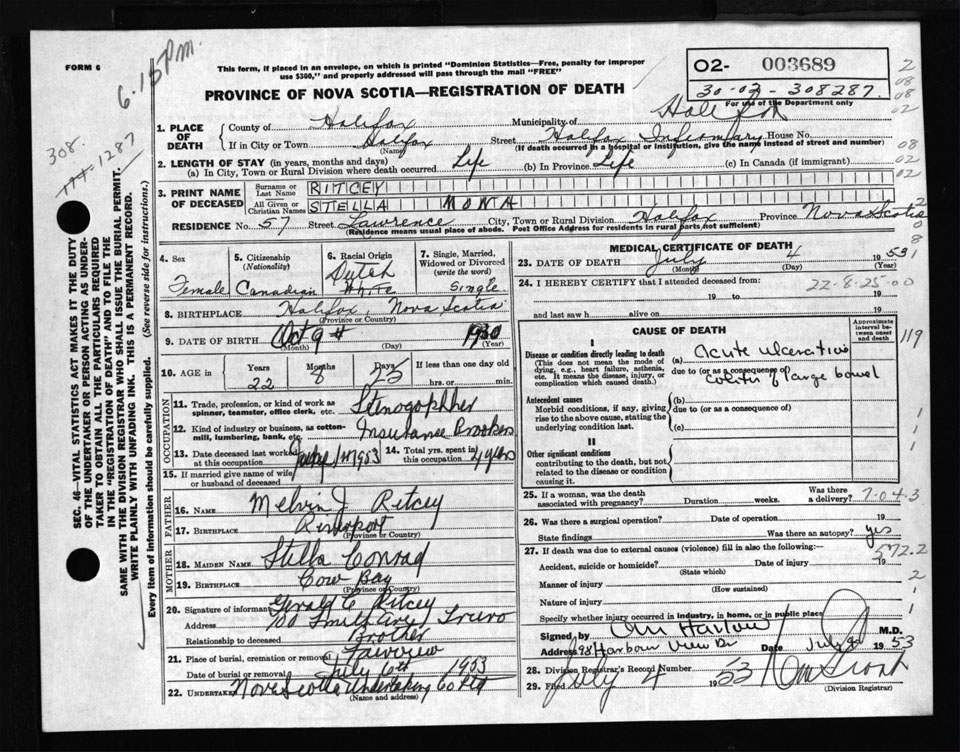 FORM 6
6.15 Pm.
This form, if placed in an envelope, on which is printed "Dominion Statistics—Free, penalty for improper
use $300," and properly addressed will pass through the mail "FREE"
PROVINCE OF NOVA SCOTIA—REGISTRATION OF DEATH
O2- 003689
30-02-308287.
For use of the Department only
308.
1287
SEC. 46—VITAL STATISTICS ACT MAKES IT THE DUTY
OF THE UNDERTAKER OR PERSON ACTING AS UNDER-
TAKER TO OBTAIN ALL THE PARTICULARS REQUIRED
IN THE "REGISTRATION OF DEATH" AND TO FILE THE
SAME WITH THE DIVISION REGISTRAR WHO SHALL ISSUE THE BURIAL PERMIT.
WRITE PLAINLY WITH UNFADING INK. THIS IS A PERMANENT RECORD.
Every item of information should be carefully supplied. (See reverse side for instructions.)
1. PLACE OF DEATH
County of Halifax Municipality of
If in City or Town Halifax Street Halifax Infirmary House No.
(Name) (If death occurred in a hospital or institution, give the name instead of street and number)
2. LENGTH OF STAY (in years, months and days)
(a) In City, Town or Rural Division where death occurred Life (b) In Province Life (c) In Canada (if immigrant)
3. PRINT NAME OF DECEASED
Surname or Last Name RITCEY
All Given or Christian Names STELLA MONA
RESIDENCE No. 57 Street Lawrence City, Town or Rural Division Halifax Province Nova Scotia
(Residence means usual place of abode. Post Office Address for residents in rural parts not sufficient)
4. Sex Female
5. Citizenship (Nationality) Canadian
6. Racial Origin Dutch White
7. Single, Married, Widowed or Divorced (write the word) Single
8. BIRTHPLACE Halifax, Nova Scotia
(Province or Country)
9. DATE OF BIRTH Oct 9th 1930
(Month) (Day) (Year)
10. AGE Years 22 Months 8 Days 25 If less than one day old
hrs. or min.
OCCUPATION
11. Trade, profession, or kind of work as
spinner, teamster, office clerk, etc.
12. Kind of industry or business, as cotton-
mill, lumbering, bank, etc. Insurance Brokers
13. Date deceased last worked
at this occupation 1953
14. Total yrs. spent in
this occupation 4 yrs
15. If married give name of wife
or husband of deceased
FATHER
16. NAME Melvin J. Ritcey
17. BIRTHPLACE Riverport
(Province or Country)
MOTHER
18. MAIDEN NAME Stella Conrad
19. BIRTHPLACE Cow Bay
(Province or Country)
20. Signature of informant Gerald C Ritcey
Address 100 Smith Ave, Truro
Relationship to deceased Brother
21. Place of burial, cremation or removal Fairview
Date of burial or removal July 6th 1953
22. Undertaker Nova Scotia Undertaking Co Ltd
(Name and address)
MEDICAL CERTIFICATE OF DEATH
23. DATE OF DEATH July 4 1953
(Month) (Day) (Year)
24. I HEREBY CERTIFY that I attended deceased from:
22-8-25-00
19 to 19
and last saw h alive on 19
CAUSE OF DEATH
Approximate interval between onset and death
I
Disease or condition directly leading to death
(This does not mean the mode of
dying, e.g., heart failure, asthenia,
etc. It means the disease, injury, or
complication which caused death.)
(a) acute ulcerative
due to (or as a consequence of)
colitis of large bowel
119
Antecedent causes
Morbid conditions, if any, giving
rise to the above cause, stating the
underlying condition last.
(b)
due to (or as a consequence of)
(c)
II
Other significant conditions
contributing to the death, but not
related to the disease or condition
causing it.
25. If a woman, was the death
associated with pregnancy? Duration weeks. Was there a delivery? 7-04-3
26. Was there a surgical operation? Date of operation 19
State findings Was there an autopsy? yes
27. If death was due to external causes (violence) fill in also the following:—
572.2
Accident, suicide or homicide? Date of injury 19
(State which)
Manner of injury
(How sustained)
Nature of injury
Specify whether injury occurred in industry, in home, or in public place
Signed by M.D.
Address 98 Harbour View Dr Date July 1953
28. Division Registrar's Record Number
29. Filed July 4 1953
(Division Registrar)